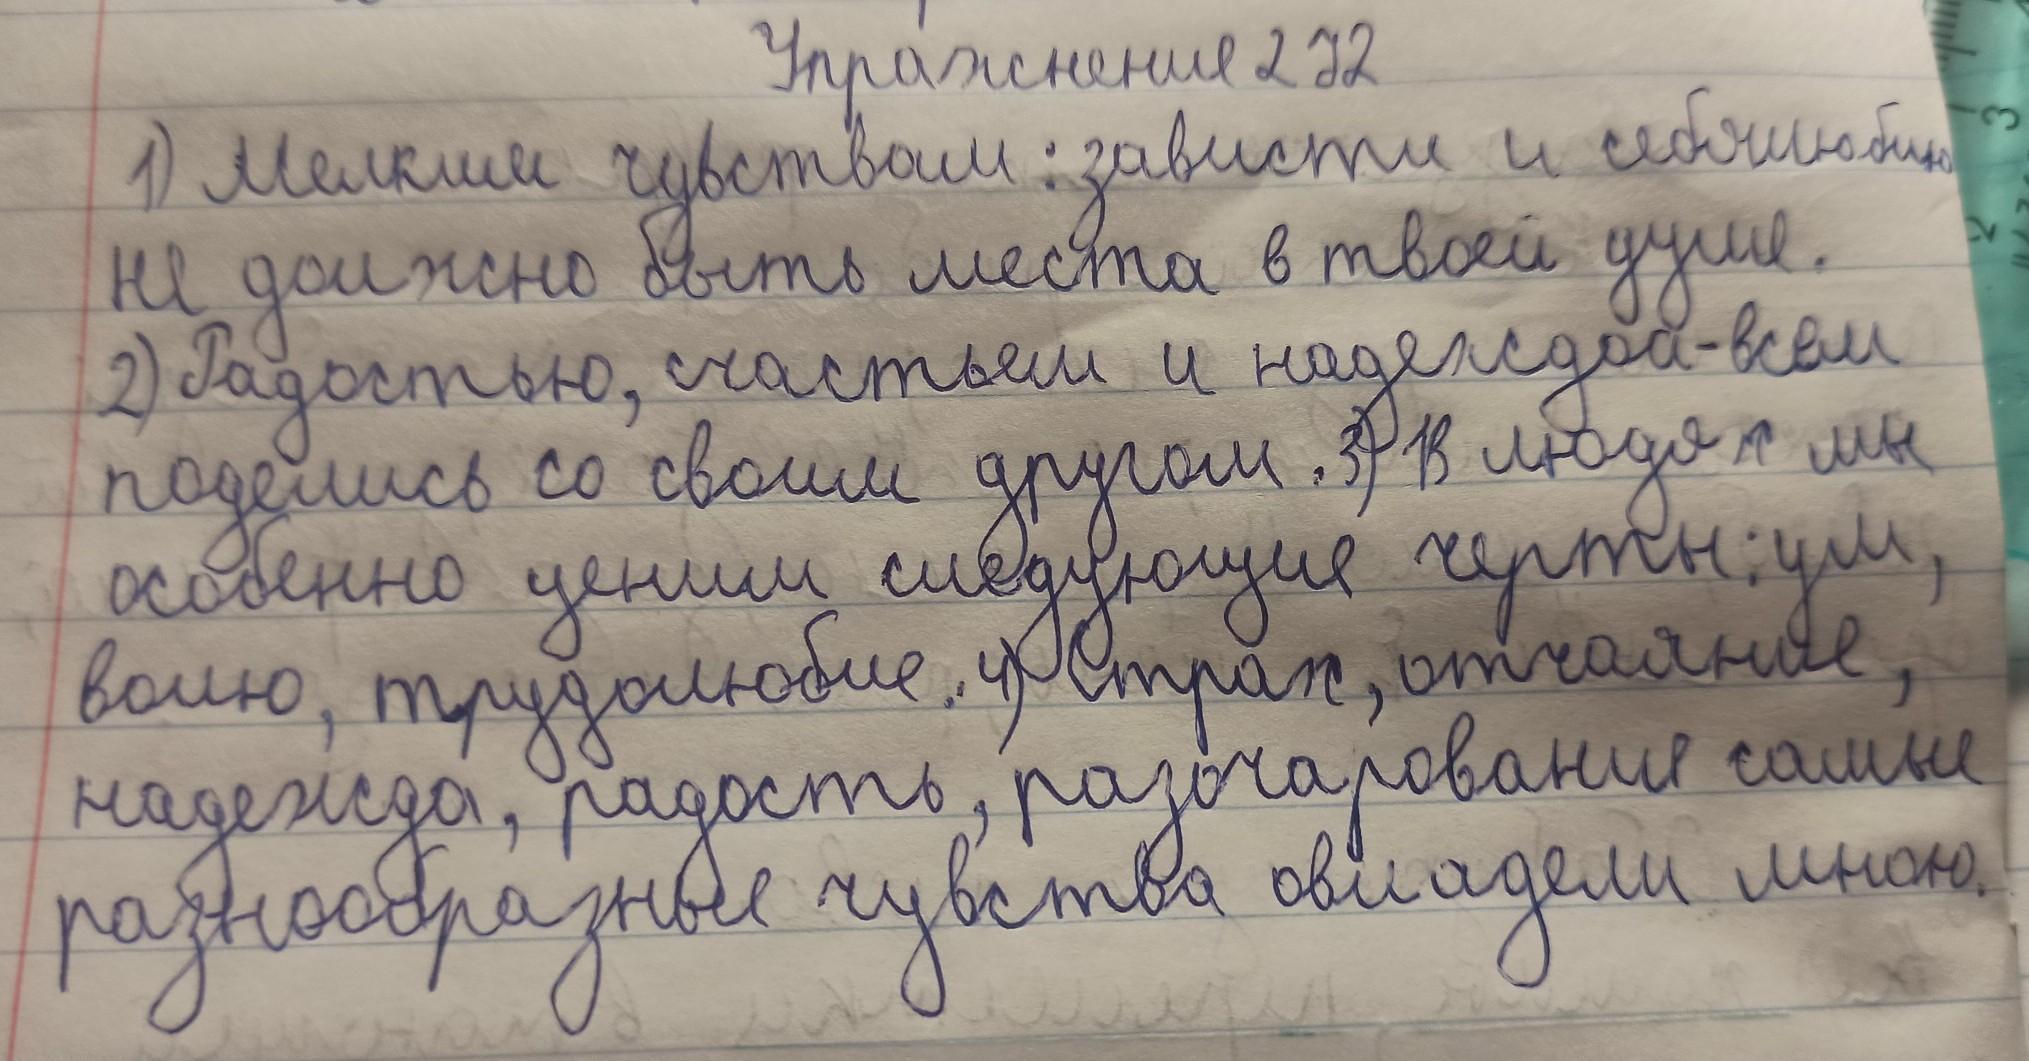 Упражнение 272
1) Мелким чувствам: зависти и себялюбию
не должно быть места в твоей душе.
2) Радостью, счастьем и надеждой-всем
поделись со своим другом. 3) В людях мы
особенно ценим следующие черты: ум,
волю, трудолюбие. 4) Страх, отчаяние,
надежда, радость, разочарование самые
разнообразные чувства овладели мною.